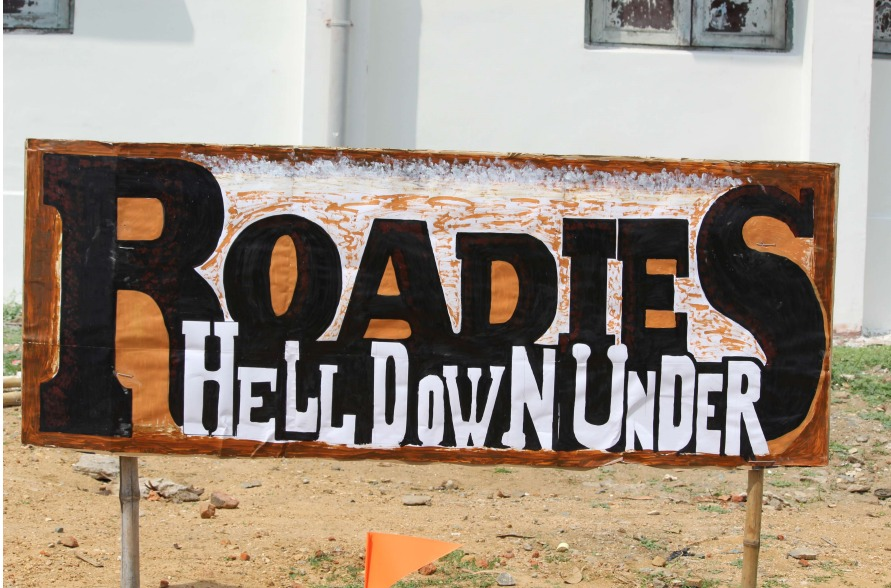 ROADIES
HELL DOWN UNDER